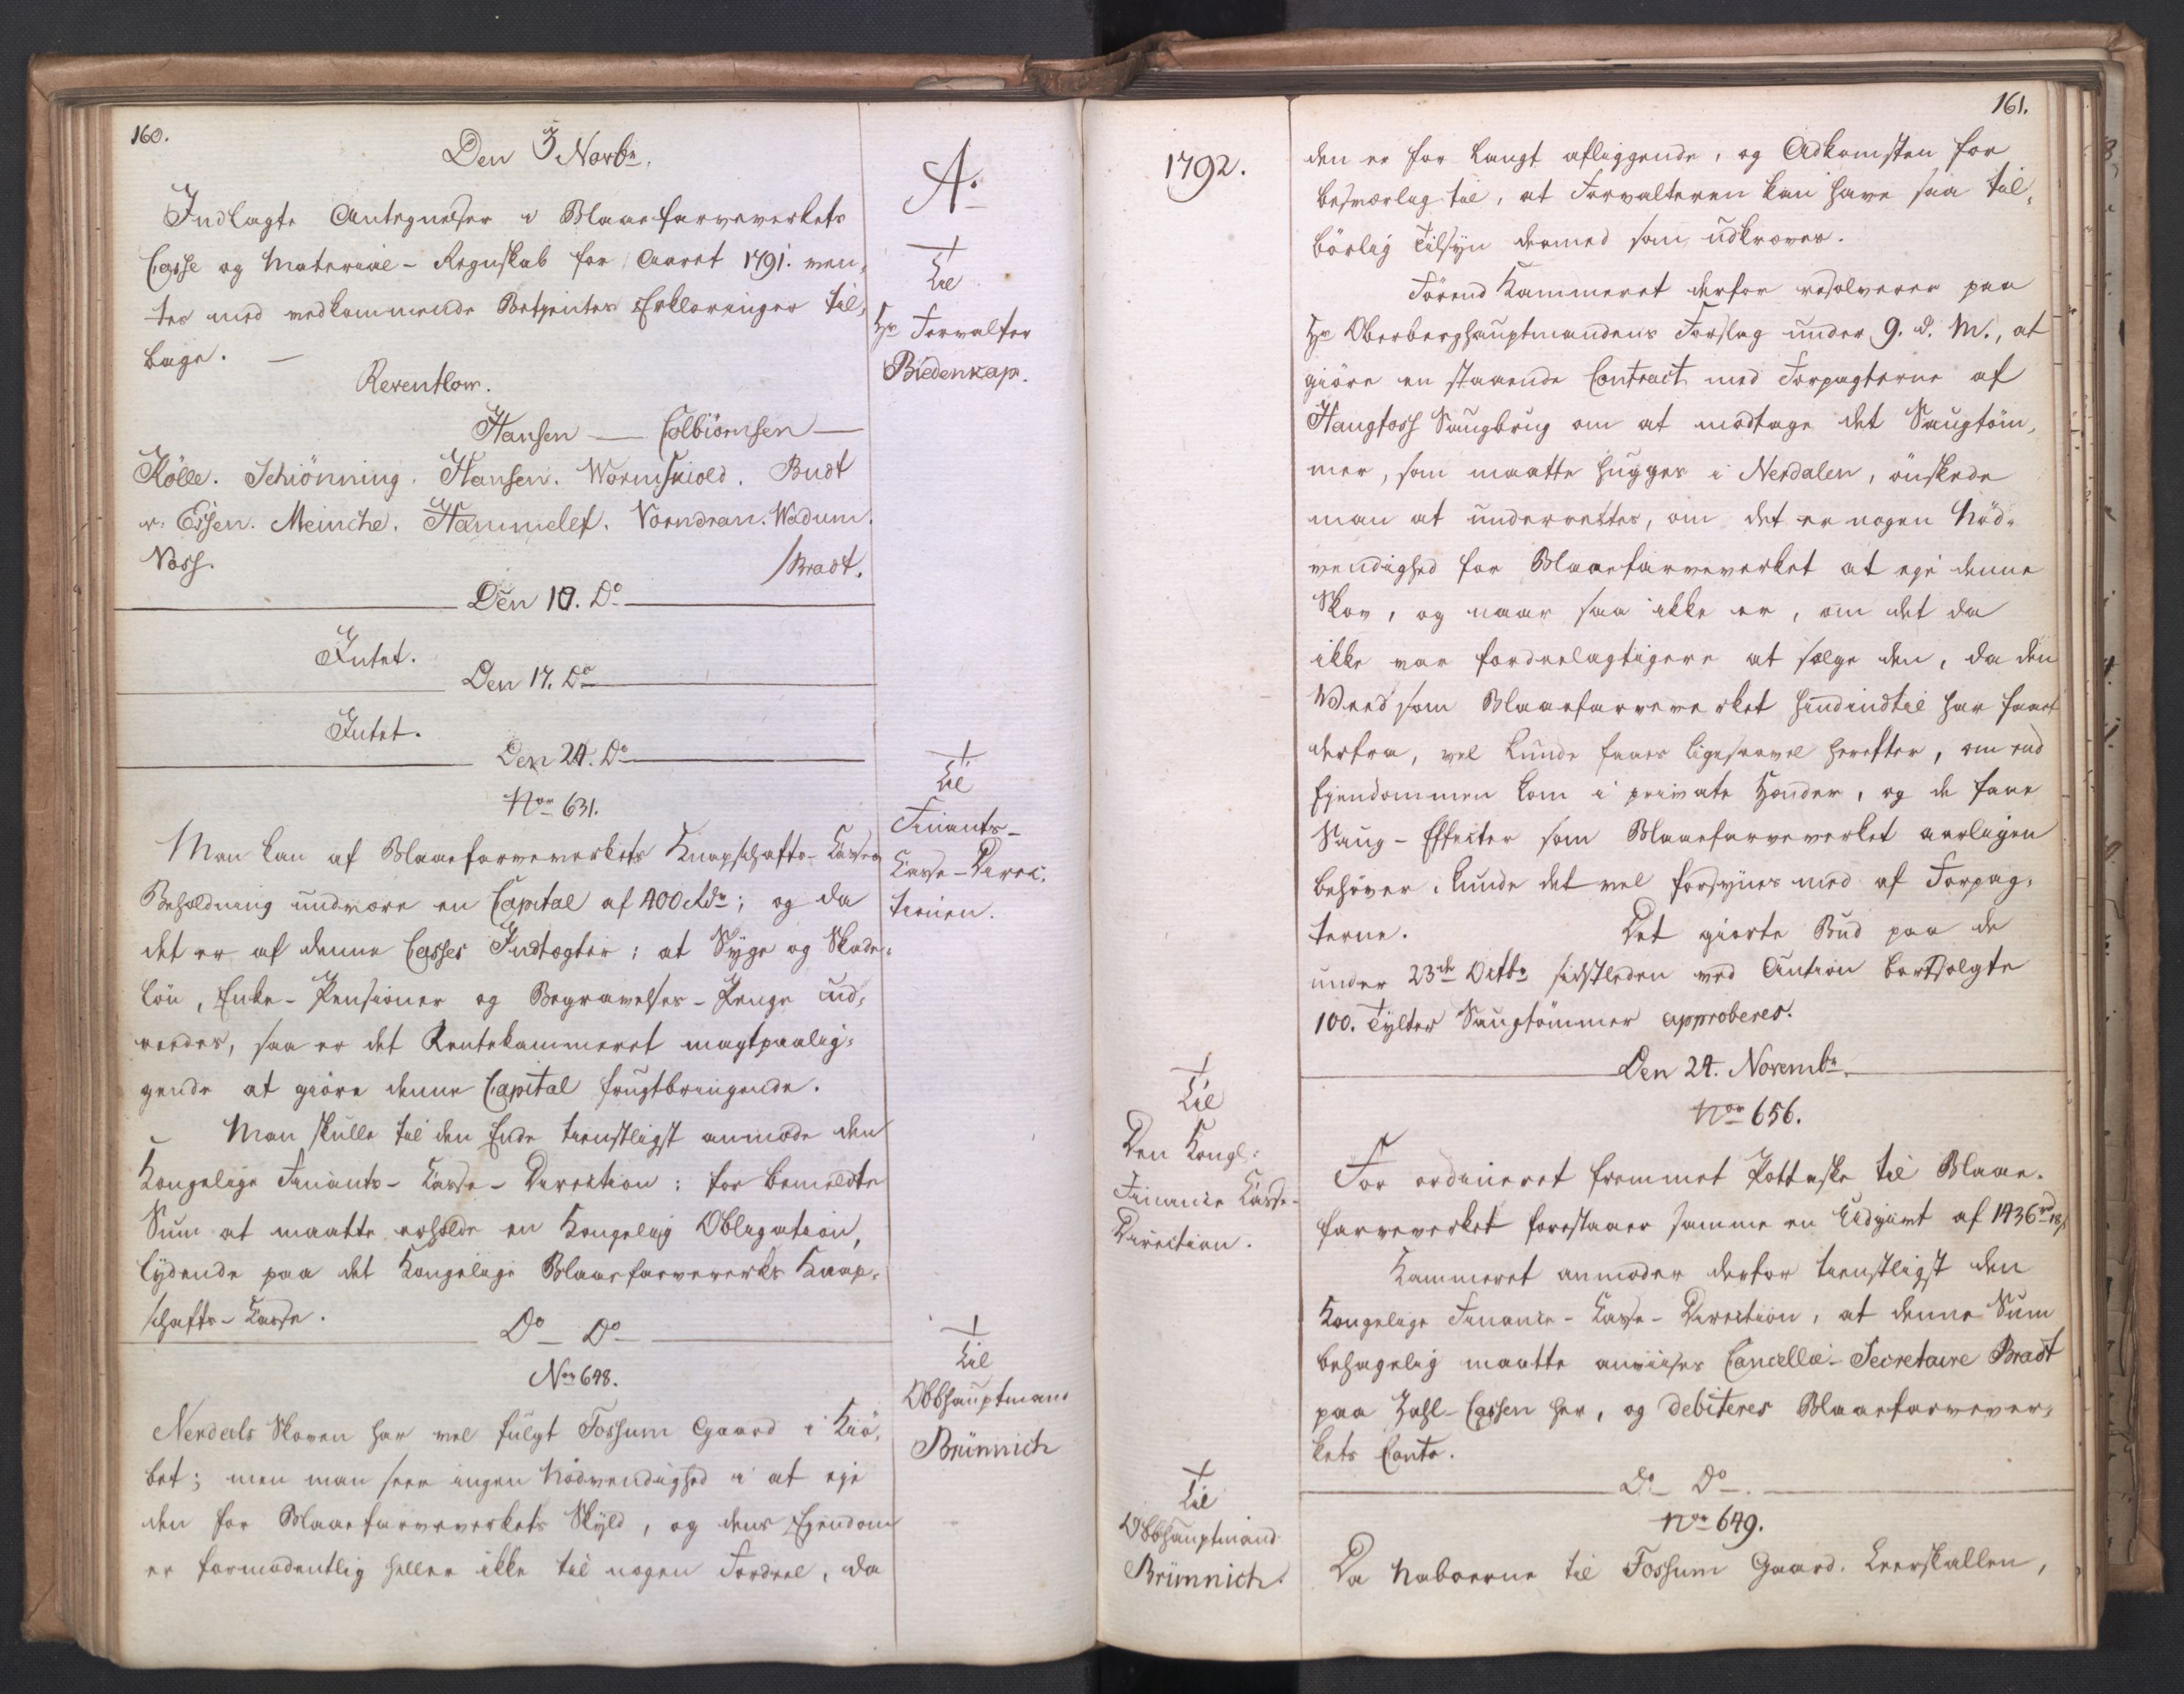 160.
Den 3 Novbr.
Indlagte Antegnelser i Blaaefarveverkets
Casse og Materiale-Regnskab for Aaret 1791. ven-
tes med vedkommende Betjentes Erklæringer til-
bage. —
Reventlow.
Hansen — Colbiörnsen —
Kölle. Schiönning. Hansen. Wormskiold. Budt
v. Essen. Meinche. Hammelef. Vorndran. Wadum.
Voss.
/Bradt.
A.
Til
Hr Forvalter
Biedenkap.
Den 10. Do
Intet.
Den 17. Do
Intet.
Den 24. Do
Nor 631.
Man kan af Blaaefarveverkets Knapschafts-Casses
Beholdning undvære en Capital af 400 Rdr; og da
det er af denne Casses Indtægter: at Syge og Skade-
lön, Enke-Pensioner og Begravelses-Penge ud-
reedes, saa er det Rentekammeret magtpaalig-
gende at giöre denne Capital frugtbringende.
Man skulle til den Ende tienstligst anmode den
Kongelige Finants-Casse-Direction: for bemeldte
Sum at maatte erholde en Kongelig Obligation,
lydende paa det Kongelige Blaaefarveverks Knap-
schafts-Casse.
Til
Finants-
Casse-Direc-
tionen.
Do Do
Nor 648.
Nerdals Skoven har vel fulgt Fossum Gaard i Kiö-
bet; men man seer ingen Nödvendighed i at eje
den for Blaaefarveverkets Skyld, og dens Ejendom
er formodentlig heller ikke til nogen Fordeel, da
Til
Obbhauptmand
Brünnich
161.
1792.
den er for langt afliggende, og Adkomsten for
besværlig til, at Forvalteren kan have saa til-
börlig Tilsyn dermed som udkræves.
Förend Kammeret derfor resolverer paa
Hr Oberberghauptmandens Forslag under 9. d. M., at
giöre en staaende Contract med Forpagterne af
Haugfoss Saugbrug om at modtage det Saugtöm-
mer, som maatte hugges i Nerdalen, önskede
man at underrettes, om det er nogen Nöd-
vendighed for Blaaefarveverket at eje denne
Skov, og naar saa ikke er, om det da
ikke var fordeelagtigere at sælge den, da den
Veed som Blaaefarveverket hindindtil har faaet
derfra, vel kunde faaes ligesaavel herefter, om end
Ejendommen kom i private Hænder, og de faae
Saug-Effecter som Blaaefarveverket aarligen
behöver, kunde det vel forsynes med af Forpag-
terne. Det giorte Bud paa de
under 23de Octbr sidstleden ved Auction bortsolgte
100. Tylter Saugtömmer approberes.
Den 24. Novembr.
Nor 656.
For ordineret fremmet Pottaske til Blaae-
farveverket forestaaer samme en Udgivt af 1436 rd
Kammeret anmoder derfor tienstligst den
Kongelige Finance-Casse-Direction, at denne Sum
behagelig maatte anvises Cancellie-Secretaire Bradt
paa Zahl-Cassen her, og debiteres Blaaefarvever-
kets Conto.
Til
Den Kongl:
Finance Casse-
Direction.
Do Do.
Nor 649.
Da Naboerne til Fossum Gaard. Leerskallen,
Til
Obbhauptmand
Brünnich.